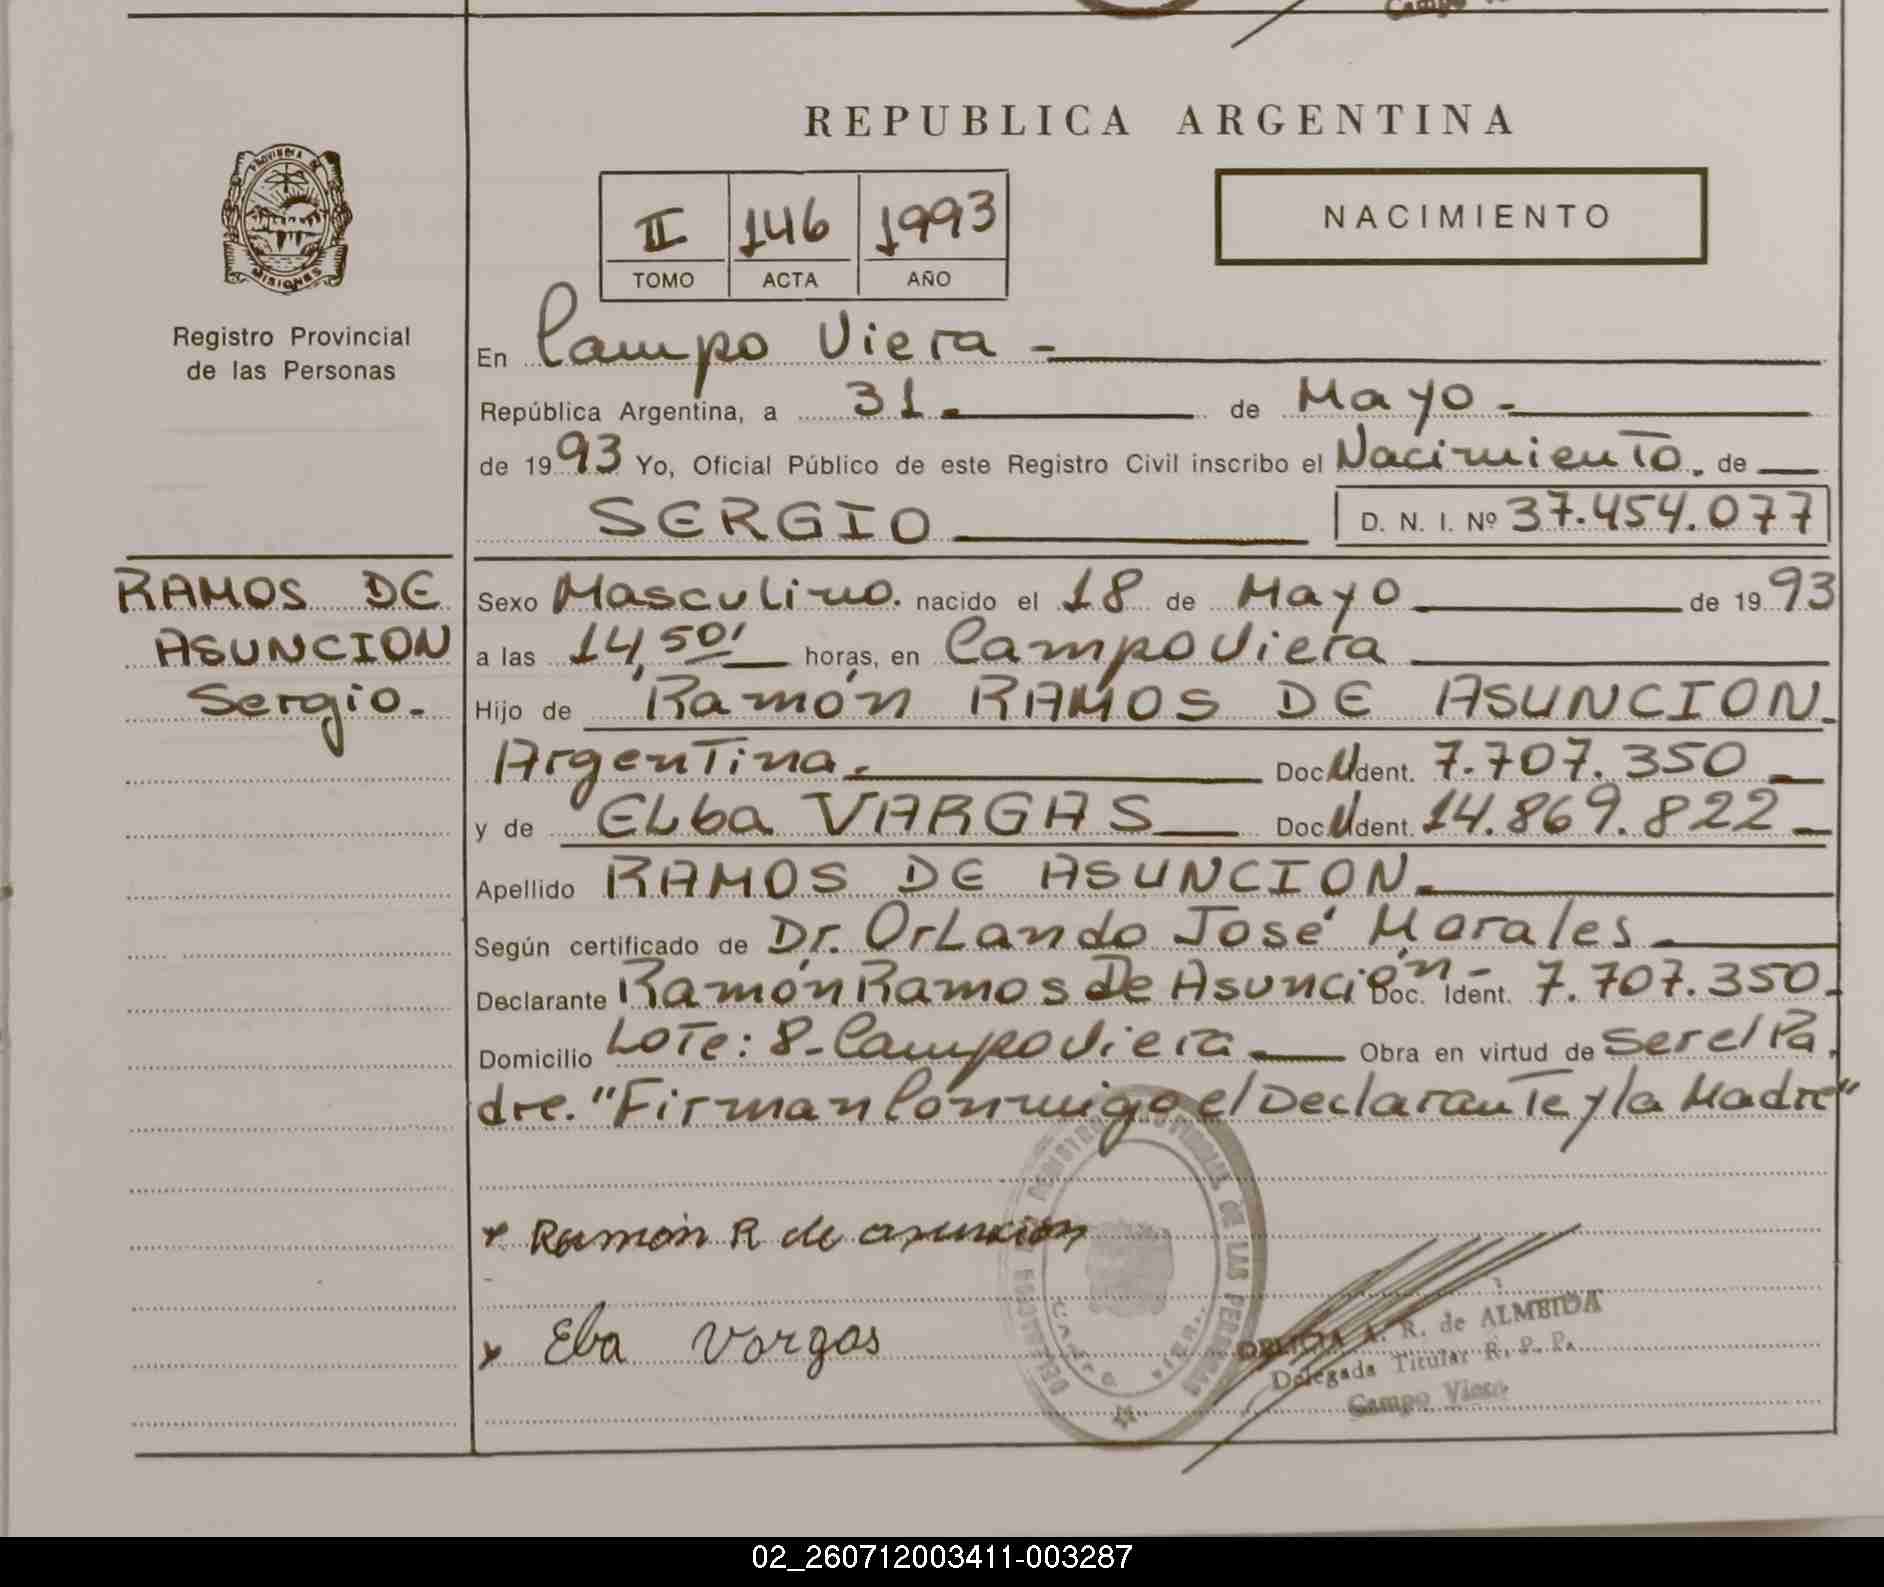 REPUBLICA ARGENTINA
PROVINCIA DE
MISIONES
Registro Provincial
de las Personas
II 146 1993
TOMO ACTA AÑO
NACIMIENTO
En Campo Viera -
República Argentina, a 31. de Mayo.
de 1993 Yo, Oficial Público de este Registro Civil inscribo el Nacimiento. de
SERGIO D. N. I. Nº 37.454.077
RAMOS DE
ASUNCION
Sergio.
Sexo Masculino. nacido el 18 de Mayo de 1993
a las 14,50' horas, en Campo Viera
Hijo de Ramón RAMOS DE ASUNCION.
Argentina. Doc. Ident. 7.707.350
y de ELba VARGAS Doc. Ident. 14.869.822
Apellido RAMOS DE ASUNCION.
Según certificado de Dr. OrLando José Morales
Declarante Ramón Ramos De Asunción - Doc. Ident. 7.707.350.
Domicilio LoTe: 8- Campo Viera Obra en virtud de ser el Pa
dre. "Firman Conmigo el Declarante y la Madre"
Ramón R de asunción
Eba Vargas
A. R. de ALMEIDA
Delegada Titular R. P. P.
Campo Viera
02_260712003411-003287